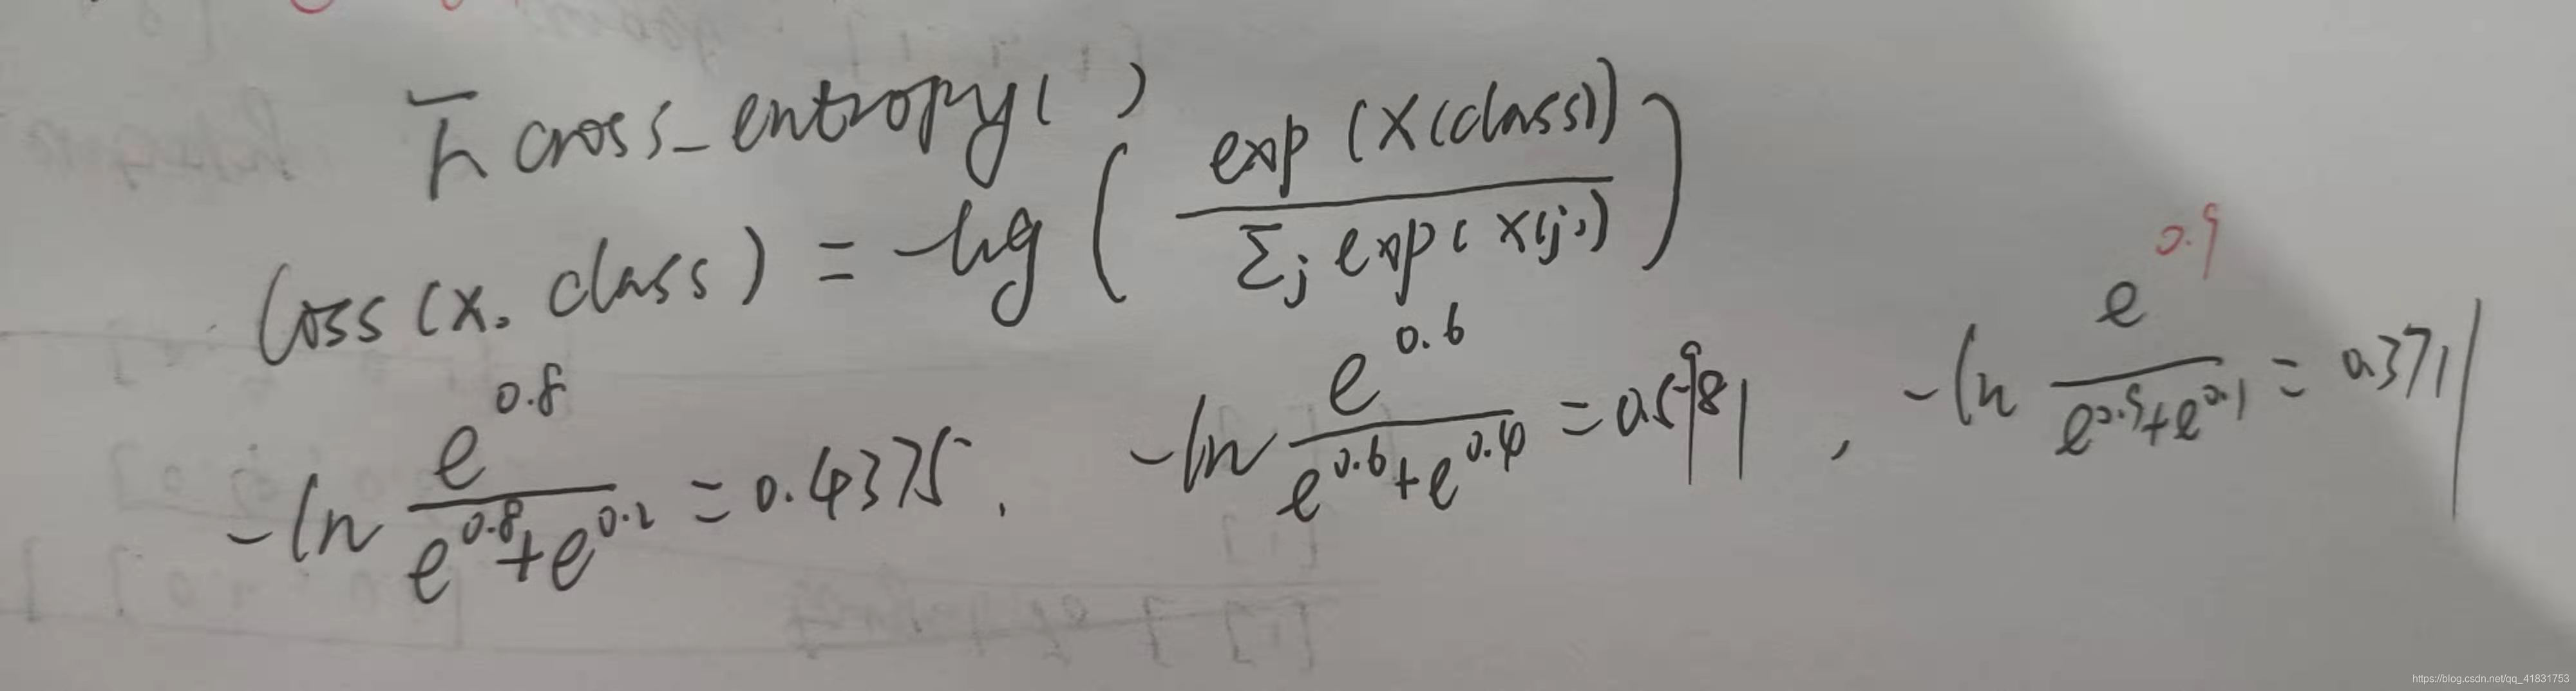 F cross_entropy( )
Loss (x, class) = -log ( exp (x(class)) / Σj exp( x(j)) )
-ln e^0.8 / e^0.8 + e^0.2 = 0.4375, -ln e^0.6 / e^0.6 + e^0.4 = 0.5981, -ln e^0.9 / e^0.9 + e^0.1 = 0.3711
https://blog.csdn.net/qq_41831753